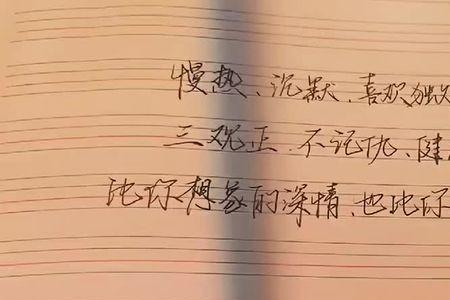 慢热、沉默、喜欢独
三观正、不记仇、健
比你想象的深情,也比你